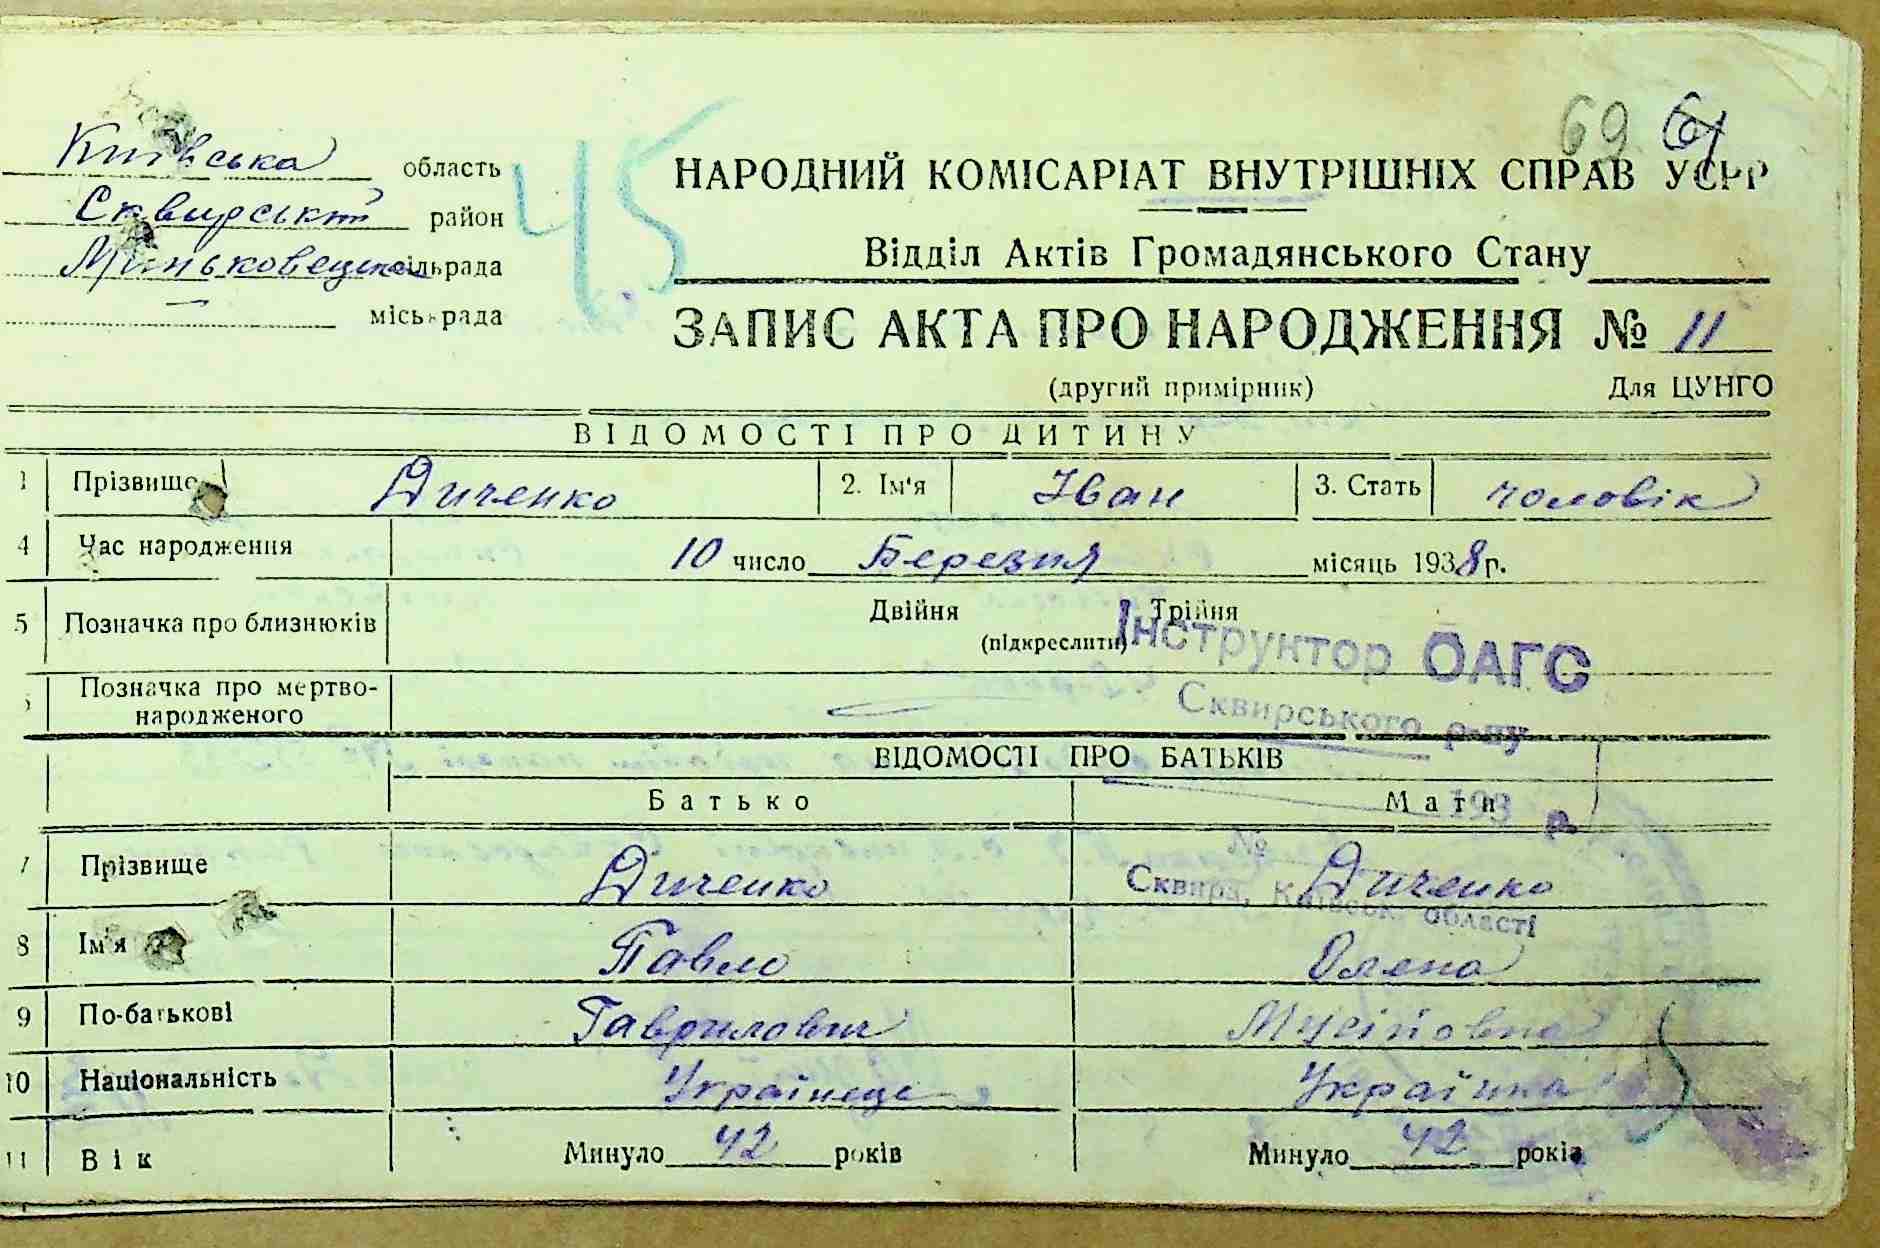 69 67
Київська область
Сквирський район
Миньковецька сільрада
міськрада
45
НАРОДНИЙ КОМІСАРІАТ ВНУТРІШНІХ СПРАВ УСРР
Відділ Актів Громадянського Стану
ЗАПИС АКТА ПРО НАРОДЖЕННЯ № 11
(другий примірник) Для ЦУНГО
ВІДОМОСТІ ПРО ДИТИНУ
1 Прізвище Диченко 2. Ім'я Іван 3. Стать чоловік
4 Час народження 10 число Березня місяць 1938 р.
5 Позначка про близнюків Двійня Трійня
(підкреслити)
Інструктор ОАГС
Позначка про мертво-
народженого
Сквирського р-ну
ВІДОМОСТІ ПРО БАТЬКІВ
Батько Мати
193 р.
№
7 Прізвище Диченко Диченко
Сквира, Київськ. області
8 Ім'я Павло Олена
9 По-батькові Гаврилович Мусіївна
10 Національність Українець Українка
11 Вік Минуло 42 років Минуло 42 років